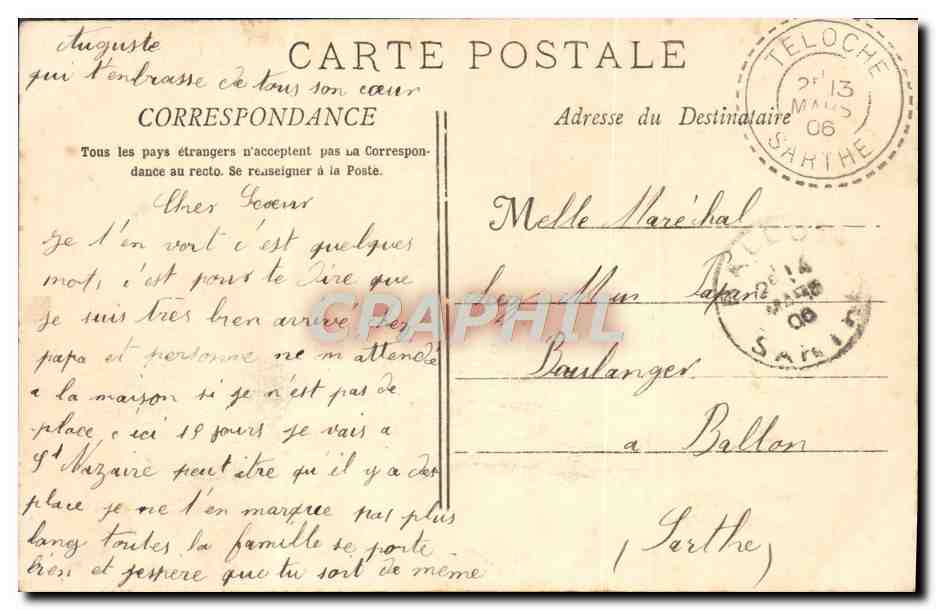 Auguste
qui t'enbrasse de tous son cœur
CARTE POSTALE
TELOCHE
13
MARS
06
SARTHE
CORRESPONDANCE
Adresse du Destinataire
Tous les pays étrangers n'acceptent pas la Correspon-
dance au recto. Se renseigner à la Poste.
Cher Sœur
Je t'en voit c'est quelques
mot, c'est pour te dire que
Je suis très bien arrivé
papa et personne ne m attendé
a la maison si je n'est pas de
place, ici 15 jours je vais a
St Nazaire peut être qu'il y a des
place je ne t'en marque pas plus
long toutes la famille se porte
bien et j'espere que tu soit de même
Melle Maréchal
chez Mus Papin
Boulanger
a Ballon
(Sarthe)
BALLON
14
MARS
06
SARTHE
CPARPHIL